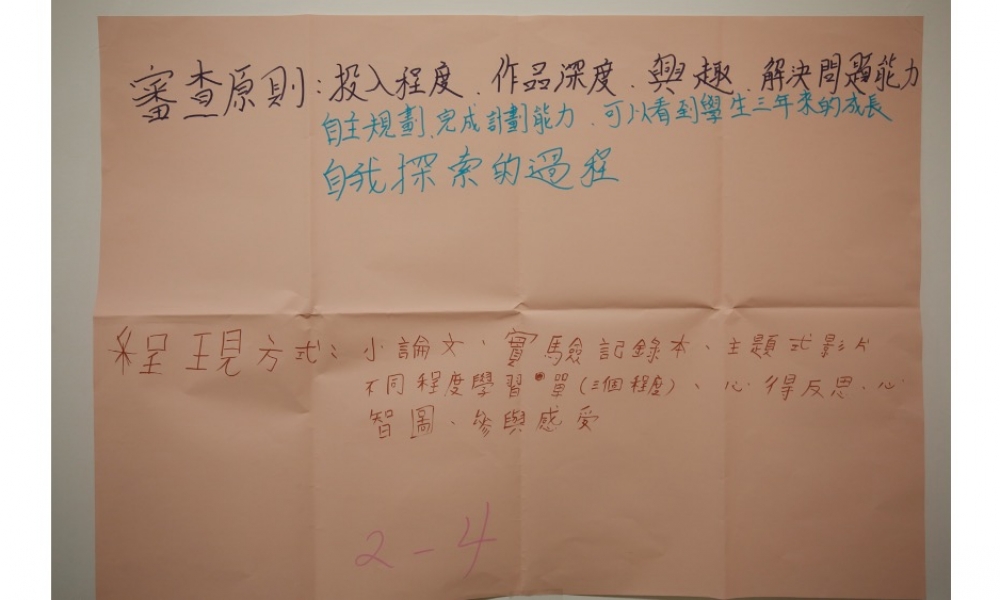 審查原則：投入程度、作品深度、興趣、解決問題能力
自主規劃、完成計劃能力、可以看到學生三年來的成長
自我探索的過程
程現方式：小論文、實驗記錄本、主題式影片
不同程度學習單（三個程度）、心得反思、心
智圖、參與感受
2-4